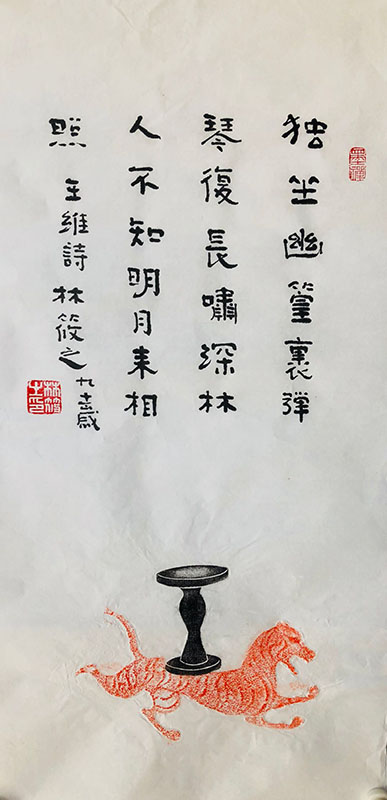 独坐幽篁裏彈
琴復長嘯深林
人不知明月来相
照 王維詩 林筱之 九
林筱之印